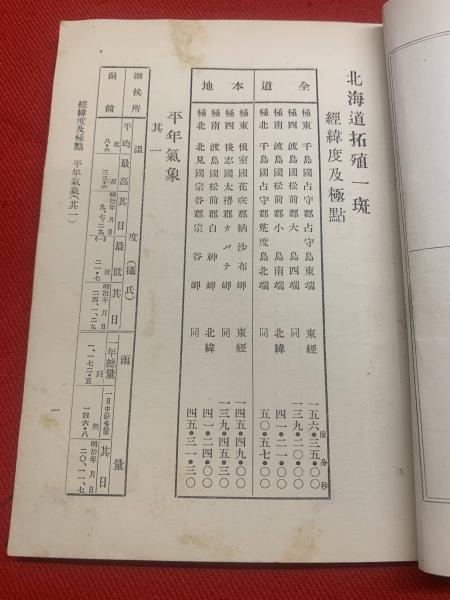 北海道拓殖一斑
經緯度及極點
全道
極東 千島國占守郡占守島東端 東經 一五六・三五・〇〇
度 分 秒
極西 渡島國松前郡大島西端 同 一三九・二〇・〇〇
極南 渡島國松前郡小島南端 北緯 四一・二一・〇〇
極北 千島國占守郡荒度島北端 同 五〇・五七・〇〇
本地
極東 根室國花咲郡納沙布岬 東經 一四五・四九・〇〇
極西 後志國太櫓郡オバナ岬 同 一三九・四五・三〇
極南 渡島國松前郡白神岬 北緯 四一・二四・〇〇
極北 北見國宗谷郡宗谷岬 同 四五・三一・三〇
平年氣象
其一
測候所
溫度(攝氏)
雨量
平均 最高 其日 最低 其日
一年總量 一日中最多量 其日
函館
度 八・六
度 三三・六
明治年月日 九、七、二九
度 (一)二一・七
明治年月日 二四、一、二九
粍 一、一七二・五
粍 一四六・八
明治年月日 二〇、一一、七
經緯度及極點 平年氣象(其一)
一